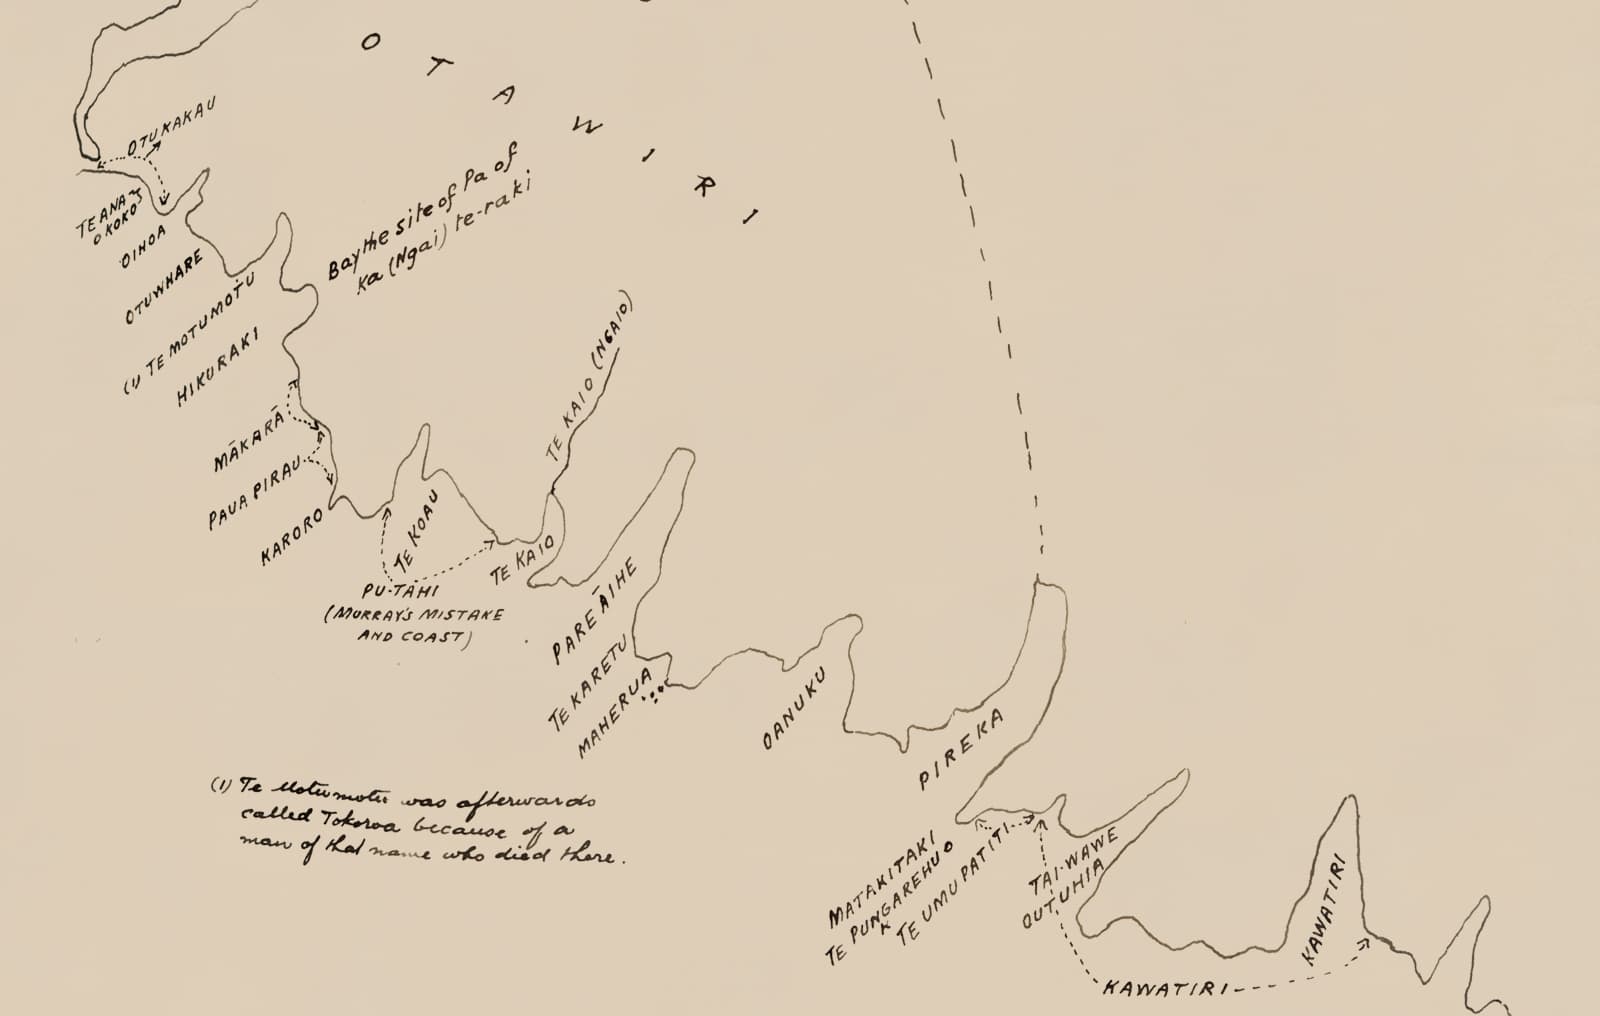 OTAWIRI
OTUKAKAU
TE ANA
O KOKO
OIHOA
OTUWHARE
(1) TE MOTUMOTU
HIKURAKI
Bay the site of Pa of
Ka (Ngai) te-raki
MĀKARĀ
PAUA PIRAU
KARORO
TE KOAU
PU-TAHI
(MURRAY'S MISTAKE
AND COAST)
TE KAIO (NGAIO)
TE KAIO
PARE ĀIHE
TE KARETU
MAHERUA
OANUKU
PIREKA
(1) Te Motumotu was afterwards
called Tokoroa because of a
man of that name who died there.
MATAKITAKI
TE PUNGAREHU O
K
TE UMU PATITI
TAI-WAWE
OUTUHIA
KAWATIRI
KAWATIRI